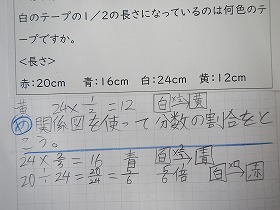 白のテープの1/2の長さになっているのは何色のテ
ープですか。
<長さ>
赤:20cm 青:16cm 白:24cm 黄:12cm
黄 24×1/2=12 白→黄
め 関係図を使って分数の割合をと
こう。
24×2/3=16 青 白→青
20÷24=20/24=5/6 5/6倍 白→赤